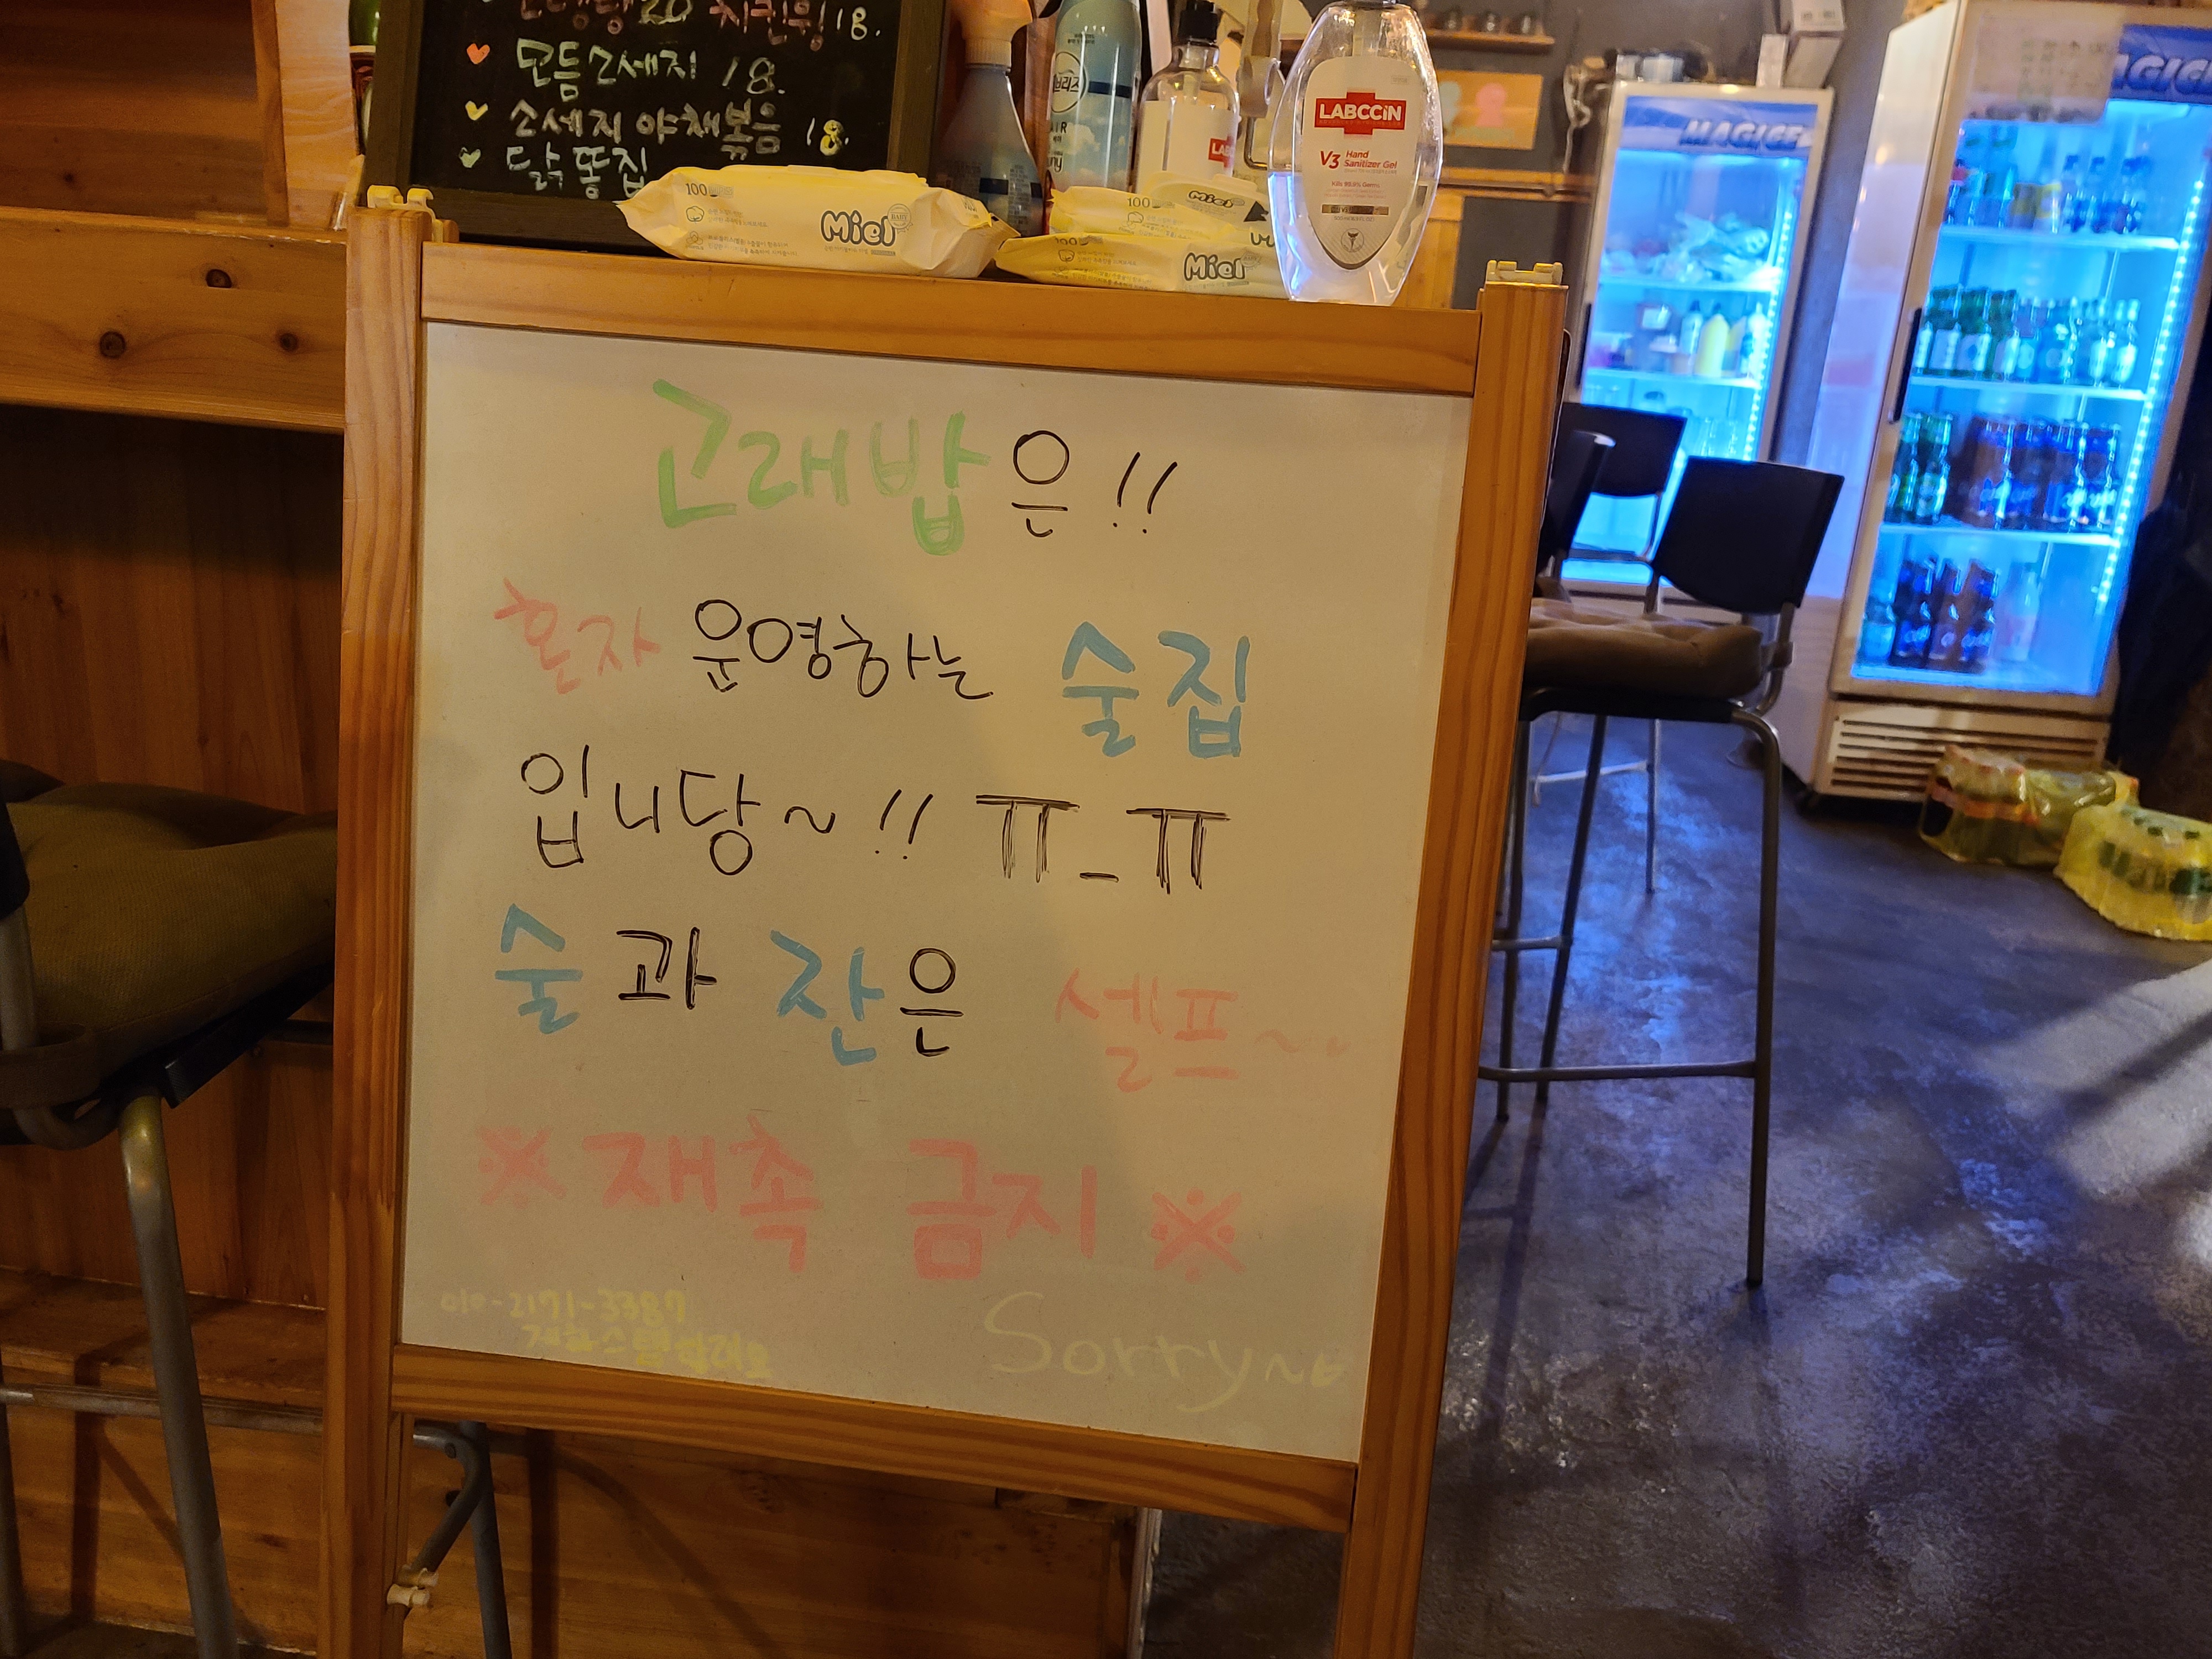 20 치킨윙 18.
모듬소세지 18.
소세지 야채볶음 18.
닭똥집
100
Miel
100
Miel
100
Miel
LABCCiN
V3 Hand
Sanitizer Gel
Kills 99.9% Germs
MAGICE
고래밥은!!
혼자 운영하는 술집
입니당~!! ㅠ_ㅠ
술과 잔은 셀프~
※재촉 금지※
010-2171-3387
Sorry~